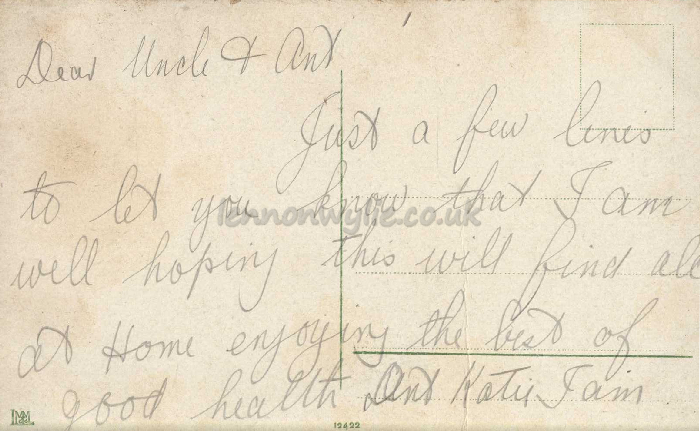 Dear Uncle & Ant
Just a few lines
to let you know that I am
lennonwylie.co.uk
well hoping this will find all
at Home enjoying the best of
good health Ant Katie I am
12422